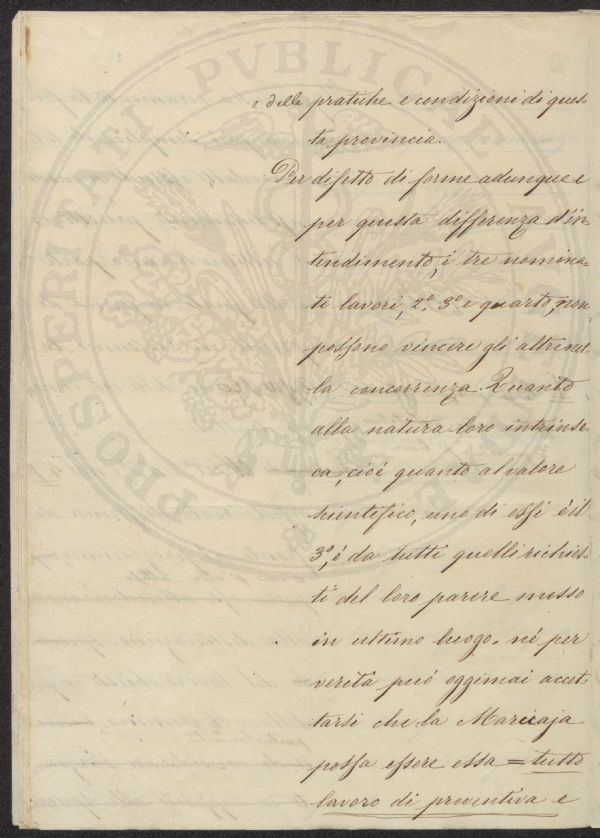 e delle pratiche e condizioni di ques-
ta provincia.
Per difetto di forme adunque e
per questa differenza d'in-
tendimento, i tre nomina-
ti lavori, 2º, 3º e quarto, non
possono vincere gli altri nel-
la concorrenza. Quanto
alla natura loro intrinse-
ca, cioé quanto al valore
scientifico, uno di essi é il
3º, é da tutti quelli richies-
ti del loro parere messo
in ultimo luogo. né per
veritá puó oggimai accet-
tarsi che la
possa essere essa = tutto
lavoro di preventiva e
PROSPERITATI PVBLICAE